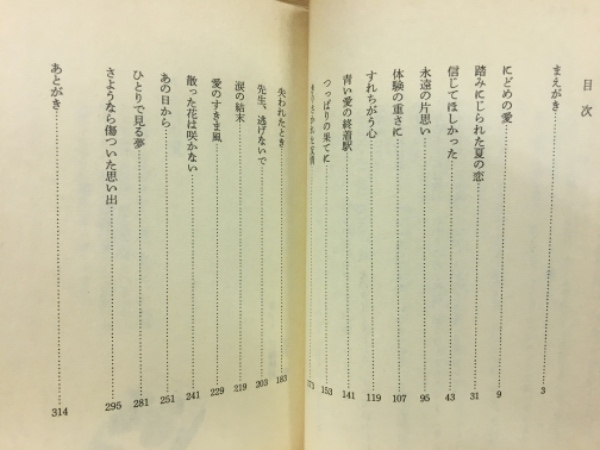 目次
まえがき 3
にどめの愛 9
踏みにじられた夏の恋 31
信じてほしかった 43
永遠の片思い 95
体験の重さに 107
すれちがう心 119
青い愛の終着駅 141
つっぱりの果てに 153
173
失われたとき 183
先生、逃げないで 203
涙の結末 219
愛のすきま風 229
散った花は咲かない 241
あの日から 251
ひとりで見る夢 281
さようなら傷ついた思い出 295
あとがき 314